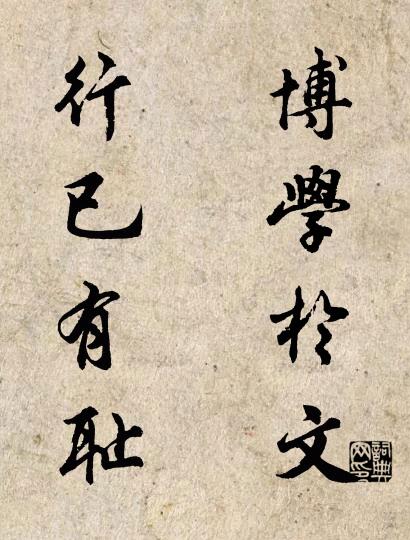 博學於文
行己有耻
詞典网印